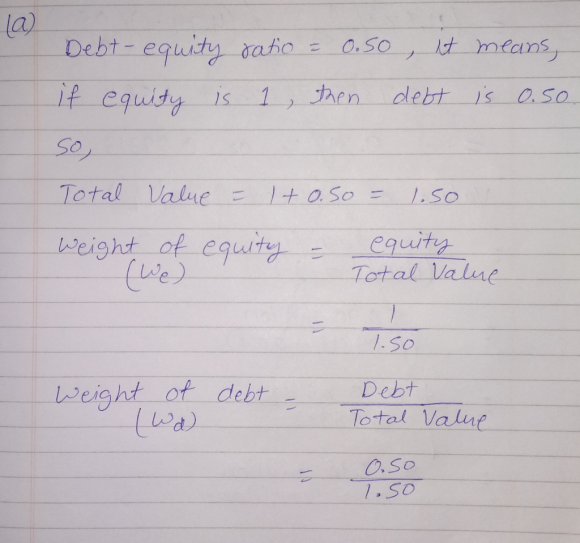 (a)
Debt-equity ratio = 0.50, it means,
if equity is 1, then debt is 0.50
so,
Total Value = 1 + 0.50 = 1.50
Weight of equity = equity / Total Value
(We)
= 1 / 1.50
Weight of debt = Debt / Total Value
(Wd)
= 0.50 / 1.50